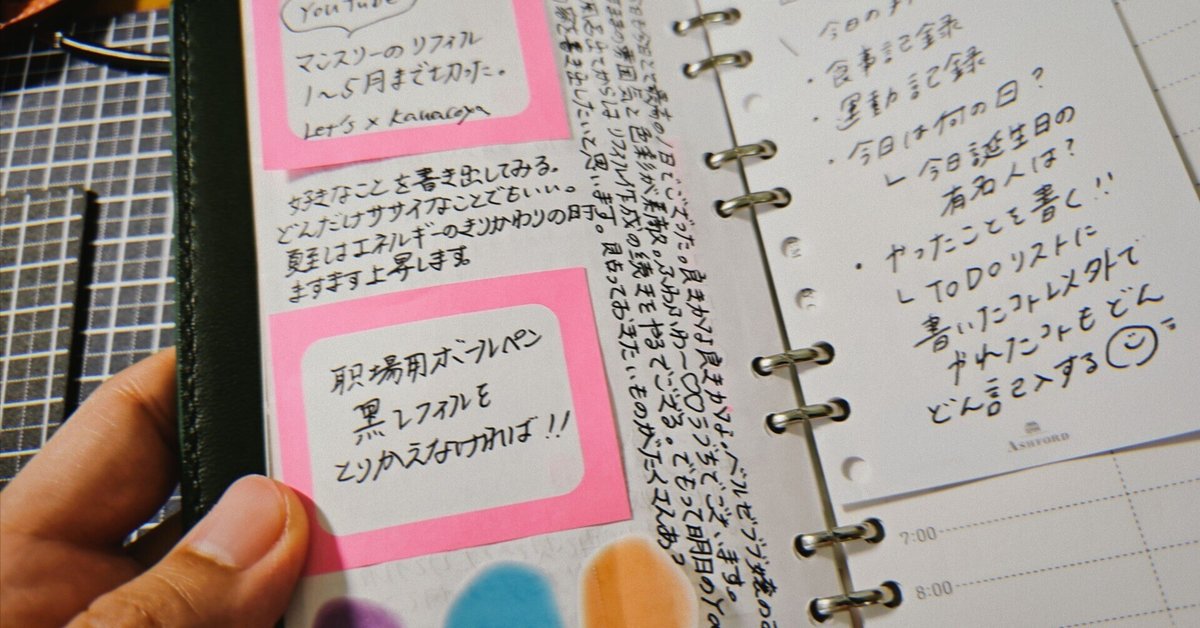 YouTube
マンスリーのリフィル
1〜5月まで切った。
Let's × Kanacoya
好きなことを書き出してみる。
どんだけササイなことでもいい。
夏至はエネルギーのきりかわりの時。
ますます上昇します。
职場用ボールペン
黒レフィルを
とりかえなければ!!
雰囲気と色彩が素敵。ふわふわ〜
リフィル作成の続きをやるでござる。でもって明日のYo
書き出したいと思います。見せっておきたいものがたくさんあっ
今日の
・食事記録
・運動記録
・今日は何の日?
└ 今日誕生日の
有名人は?
・やったことを書く!!
└ ToDoリストに
書いたコト以外で
やれたコトもどん
どん記入する
ASHFORD
7:00
8:00